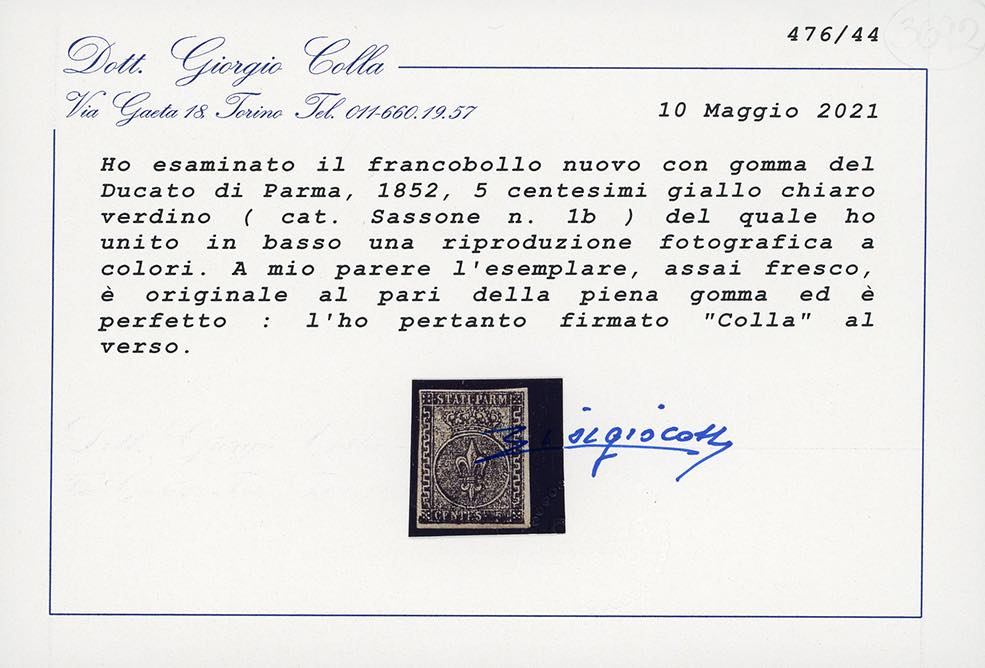 476/44
3692
Dott. Giorgio Colla
Via Gaeta 18 Torino Tel. 011-660.19.57
10 Maggio 2021
Ho esaminato il francobollo nuovo con gomma del
Ducato di Parma, 1852, 5 centesimi giallo chiaro
verdino ( cat. Sassone n. 1b ) del quale ho
unito in basso una riproduzione fotografica a
colori. A mio parere l'esemplare, assai fresco,
è originale al pari della piena gomma ed è
perfetto : l'ho pertanto firmato "Colla" al
verso.
STATI PARM
CENTES. 5